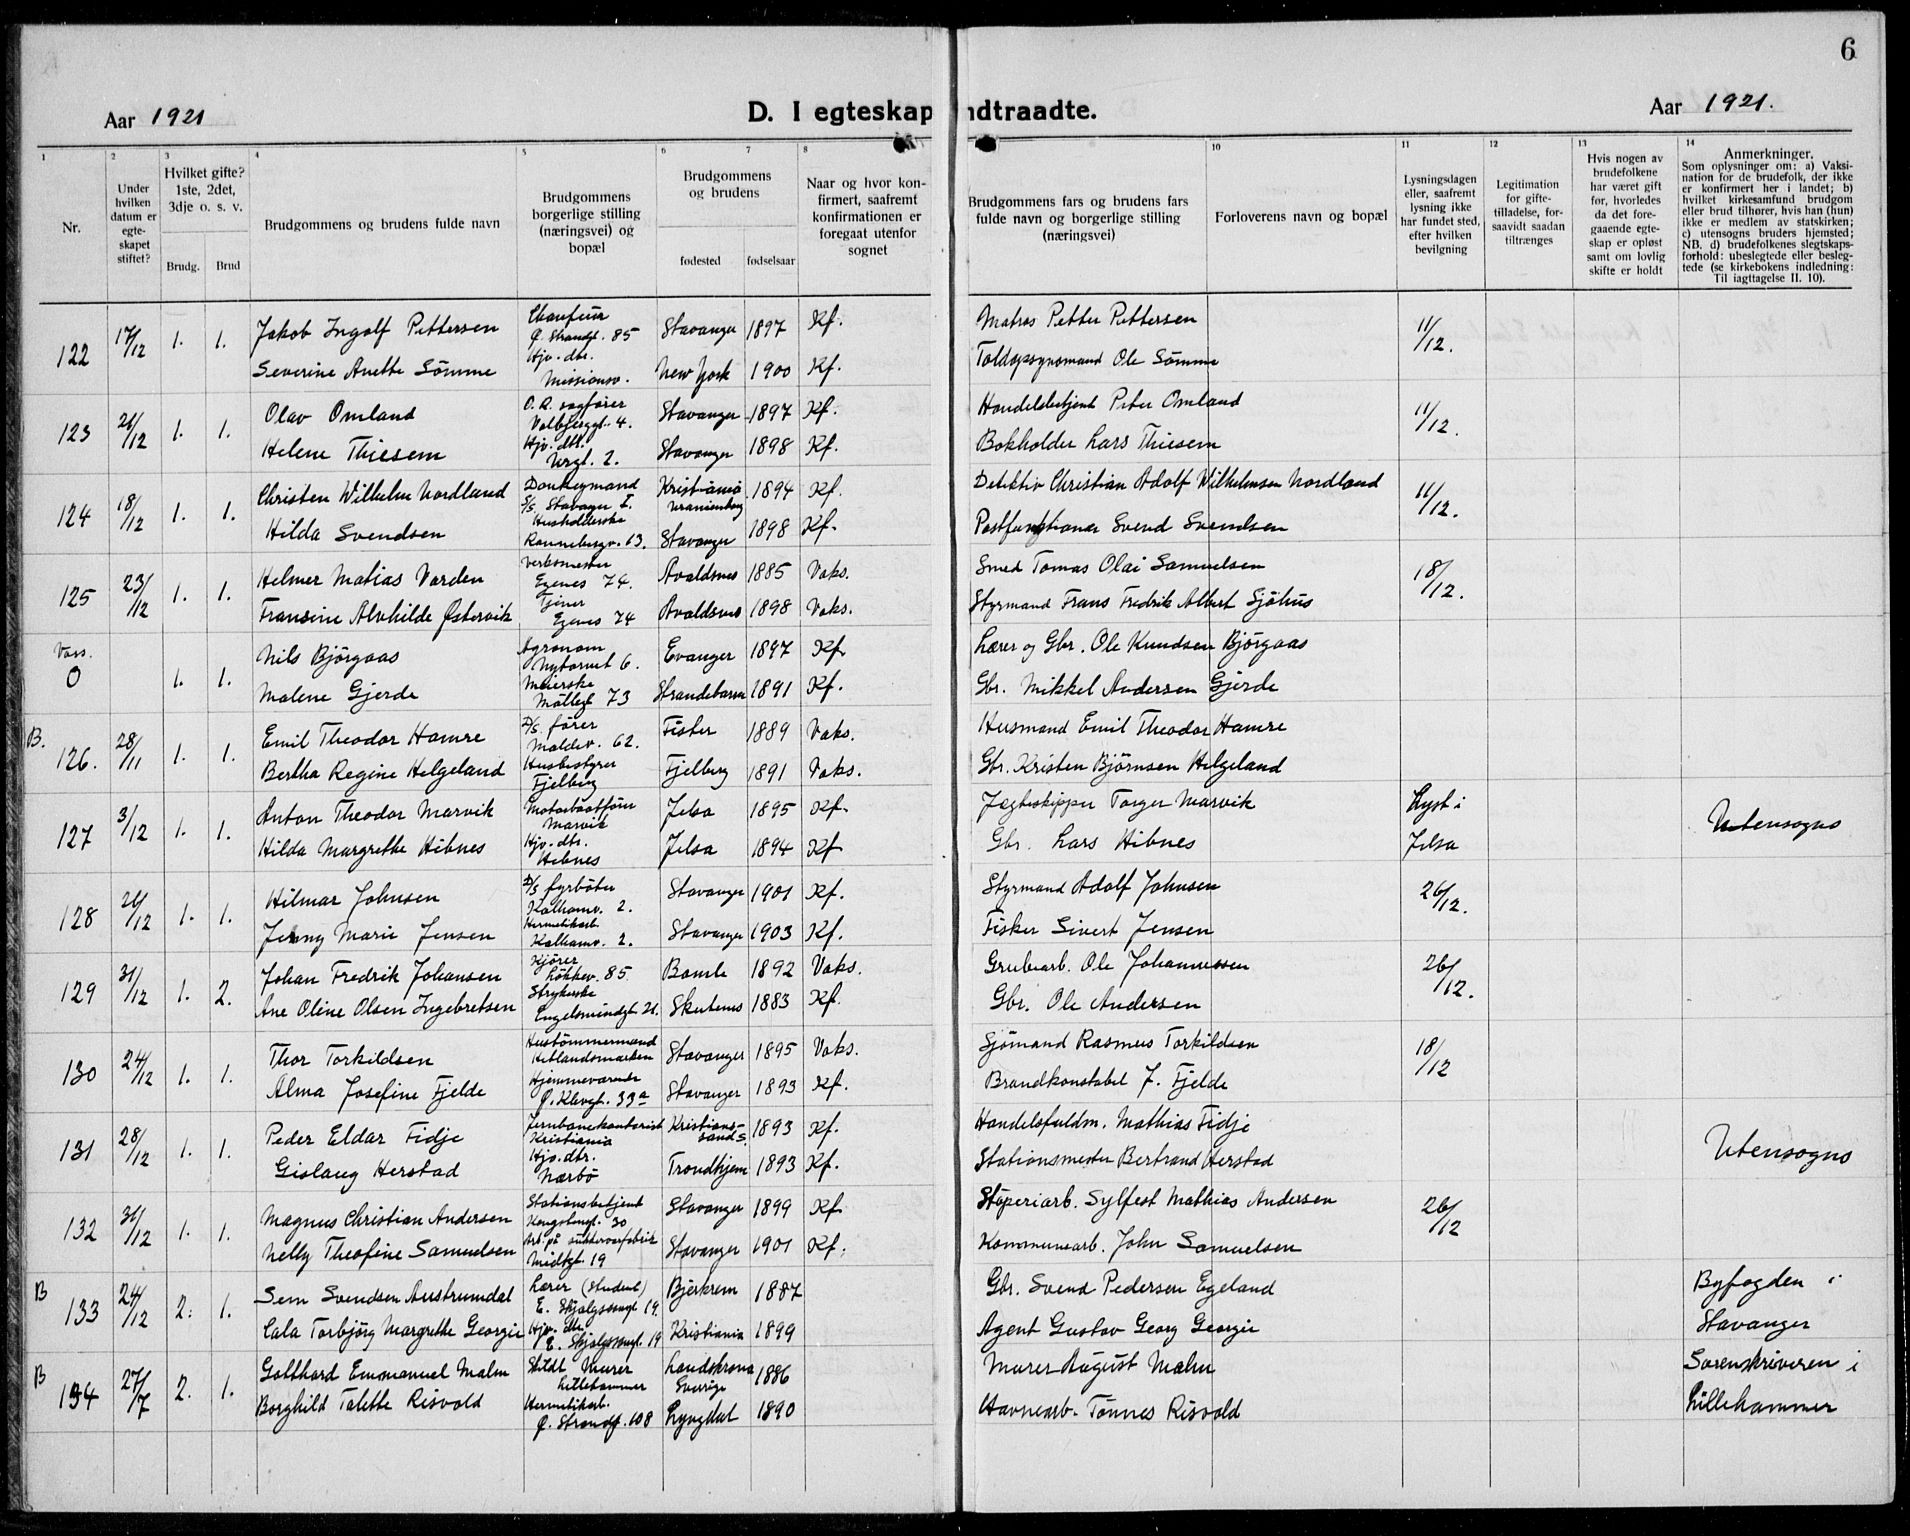 6
Aar 1921
D. I egteskap indtraadte.
Aar 1921.
1 2 3 4 5 6 7 8 10 11 12 13 14
Nr.
Under hvilken datum er egteskapet stiftet?
Hvilket gifte? 1ste, 2det, 3dje o. s. v.
Brudg. Brud
Brudgommens og brudens fulde navn
Brudgommens borgerlige stilling (næringsvei) og bopæl
Brudgommens og brudens
fødested fødselsaar
Naar og hvor konfirmert, saafremt konfirmationen er foregaat utenfor sognet
Brudgommens fars og brudens fars fulde navn og borgerlige stilling (næringsvei)
Forloverens navn og bopæl
Lysningsdagen eller, saafremt lysning ikke har fundet sted, efter hvilken bevilgning
Legitimation for giftetilladelse, forsaavidt saadan tiltrænges
Hvis nogen av brudefolkene har været gift før, hvorledes da det foregaaende egteskap er opløst samt om lovlig skifte er holdt
Anmerkninger.
Som oplysninger om: a) Vaksination for de brudefolk, der ikke er konfirmert her i landet; b) hvilket kirkesamfund brudgom eller brud tilhører, hvis han (hun) ikke er medlem av statskirken; c) utensogns bruders hjemsted; NB. d) brudefolkenes slegtskapsforhold: ubeslegtede eller beslegtede (se kirkebokens indledning: Til iagttagelse II. 10).
122 17/12 1. 1. Jakob Ingolf Pettersen Chaufeur Ø. Strandgt. 85 Stavanger 1897 Kf. Matros Petter Pettersen 11/12.
Severine Anette Sömme Hjv. dtr. Missionsv. New York 1900 Kf. Toldopsynsmand Ole Sömme
123 21/12 1. 1. Olav Omland O.R. sagfører Valbjerggt. 4. Stavanger 1897 Kf. Handelsbetjent Peter Omland 11/12.
Helene Thiesem Hjv. dtr. Urgt. 2. Stavanger 1898 Kf. Bokholder Lars Thiesem
124 18/12 1. 1. Christen Wilhelm Nordland Donkeymand S/S. Stavanger I. Kristiania Uranienborg 1894 Kf. Detektiv Christian Adolf Wilhelmsen Nordland 11/12.
Hilda Svendsen Husholderske Rannebergv. 13. Stavanger 1898 Kf. Postfunktionær Svend Svendsen
125 23/12 1. 1. Helmer Matias Varden Verksmester Egenes 74. Avaldsnes 1885 Vaks. Smed Tomas Olai Samuelsen 18/12.
Fransine Alvhilde Østervik Tjener Egenes 74 Avaldsnes 1898 Vaks. Styrmand Frans Fredrik Albert Sjöhus
Voss. 0 1. 1. Nils Björgaas Agronom Nytorvet 6. Evanger 1897 Kf. Lærer og Gbr. Ole Knudsen Björgaas
Malene Gjerde Meierske Möllegt 73 Strandebarm 1891 Kf. Gbr. Mikkel Andersen Gjerde
B. 126. 28/11 1. 1. Emil Theodor Hamre D/S. fører Maldev. 62. Fister 1889 Vaks. Husmand Emil Theodor Hamre
Bertha Regine Helgeland Husbestyrer Fjelberg Fjelberg 1891 Vaks. Gbr. Kristen Bjørnsen Helgeland
127 3/12 1. 1. Anton Theodor Marvik Motorbaatfører Marvik Jelsa 1895 Kf. Jægteskipper Torger Marvik Lyst i Utensogns
Hilda Margrethe Hibnes Hjv. dtr. Hebnes Jelsa 1894 Kf Gbr. Lars Hibnes Jelsa
128 26/12 1. 1. Hilmar Johnsen D/S fyrböter Kalhamv. 2. Stavanger 1901 Kf. Styrmand Adolf Johnsen 26/12.
Jenny Marie Jensen Hermetikarb. Kalhamv. 2. Stavanger 1903 Kf. Fisker Sivert Jensen
129 31/12 1. 2. Johan Fredrik Johansen Kjører Løkkev. 85 Bamle 1892 Vaks. Grubearb. Ole Johannessen 26/12.
Ane Oline Olsen Ingebretsen Strykerske Engelsmindgt 21. Skutenes 1883 Kf. Gbr. Ole Andersen
130 24/12 1. 1. Thor Torkildsen Hustömmermand Hetlandsmarken Stavanger 1895 Vaks. Sjömand Rasmus Torkildsen 18/12
Alma Josefine Fjelde Hjemmeværende Ø. Klevgt. 33a Stavanger 1893 Kf. Brandkonstabel J. Fjelde
131 28/12 1. 1. Peder Eldar Fidje Jernbanekontorist Kristiania Kristianssand S. 1893 Kf. Handelsfuldm. Mathias Fidje Utensogns
Gislaug Herstad Hjv. dtr. Nærbö Trondhjem 1893 Kf. Stationsmester Bertrand Herstad
132 31/12 1. 1. Magnus Christian Andersen Stationsbetjent Kongstengt. 30 Stavanger 1899 Kf Stöperiarb. Sylfest Mathias Andersen 26/12
Nelly Theofine Samuelsen Arb. på sukkervarfabrik Midtgt. 19 Stavanger 1901 Kf. Kommunearb. John Samuelsen
B 133 24/12 2. 1. Sem Svendsen Austrumdal Lærer (student) E. Skjalgssongt. 19. Bjerkrem 1887 Gbr. Svend Pedersen Egeland Byfogden i
Cala Torbjörg Margrethe Georgie Hjv. dtr. E. Skjalgssongt. 19 Kristiania 1899 Agent Gustav Georg Georgie Stavanger
B 134 27/7 2. 1. Gotthard Emmanuel Malm Murer Lillehammer Landskrona Sverige 1886 Murer August Malm Sorenskriveren i
Borghild Talette Risvold Hermetikarb. Ø. Strandgt. 108 Lyngdal 1890 Havnearb. Tönnes Risvold Lillehammer